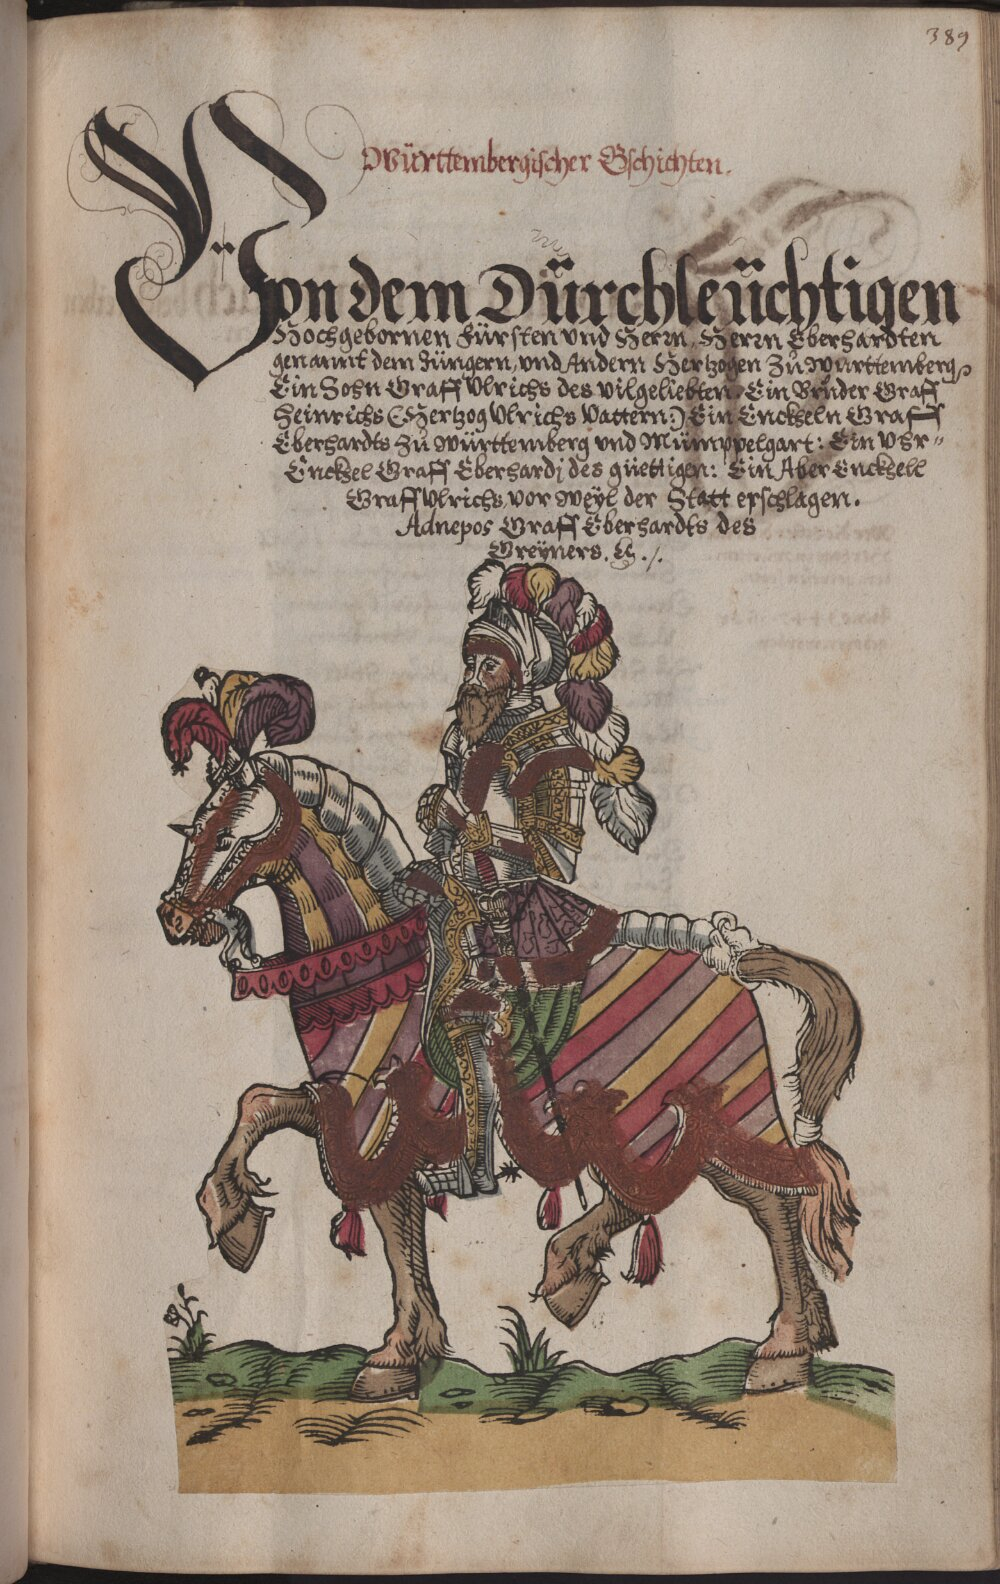 389
Württembergischer Gschichten.
Von dem Dürchleüchtigen
Hochgebornen Fürsten vnd Herrn, Herrn Eberhardten
genannt dem Jüngern, vnd Andern Hertzogen Zů Württemberg,
Ein Sohn Graff Vlrichs des vilgeliebten. Ein Brůder Graff
Heinrichs (: Hertzog Vlrichs Vattern:) Ein Enckeln Graff
Eberhardts Zů Württemberg vnd Mümppelgart: Ein Vhr=
Enckhel Graff Eberhardj des güettigen: Ein Aber Enckhell
Graff Vlrichs, vor Weyl der Statt erschlagen.
Adnepos Graff Eberhardts des
Greÿners. &. /.